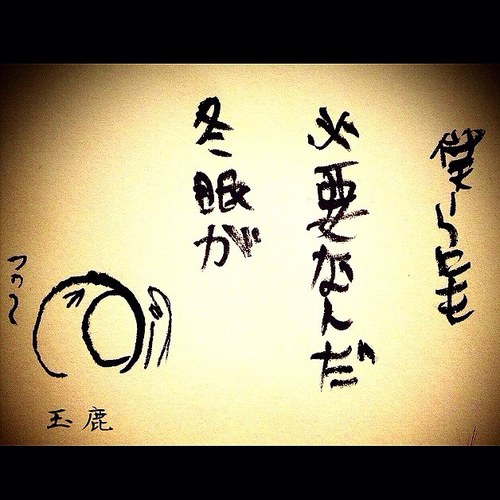 僕らにも
必要なんだ
冬眠が
玉鹿